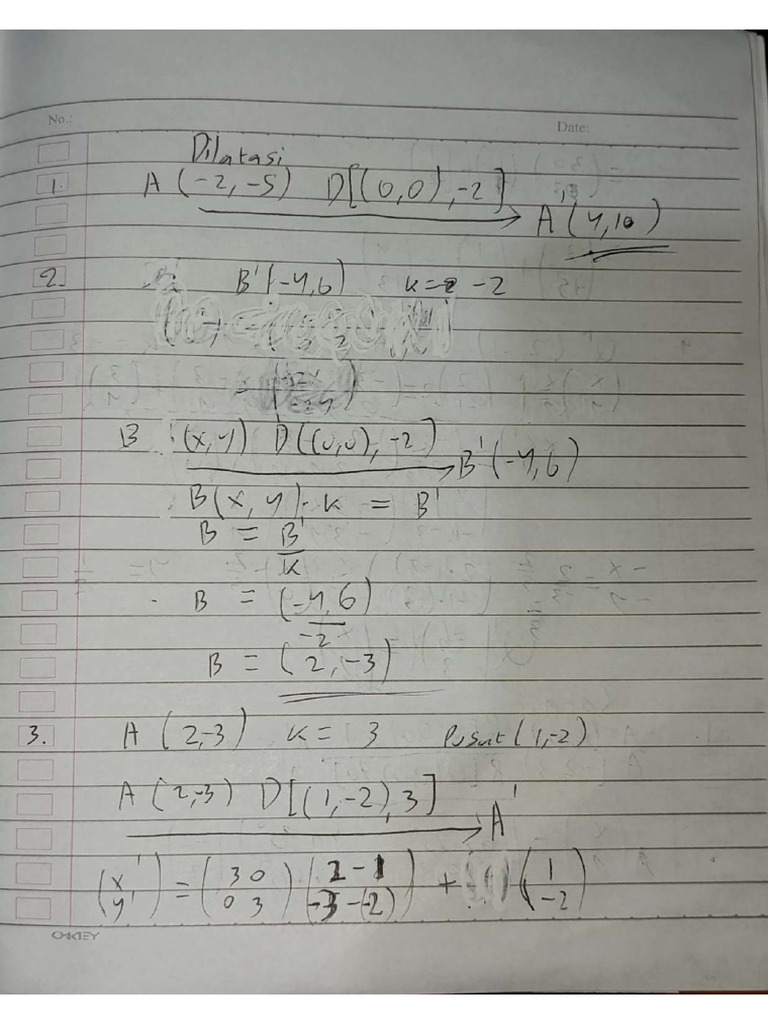 No.:
Date:
Dilatasi
1. A (-2, -5) D[(0,0), -2]
A' (4,10)
2. B' (-4,6) k = -2
B (x, y) D((0,0), -2)
B' (-4,6)
B(x, y) . k = B'
B = B'
k
B = (-4,6)
-2
B = (2, -3)
3. A (2,-3) k = 3 Pusat (1,-2)
A (2,-3) D[(1,-2),3]
A'
(x' = (3 0 (2 - 1 + (1
y') 0 3) -3-(-2)) -2)
OKEY